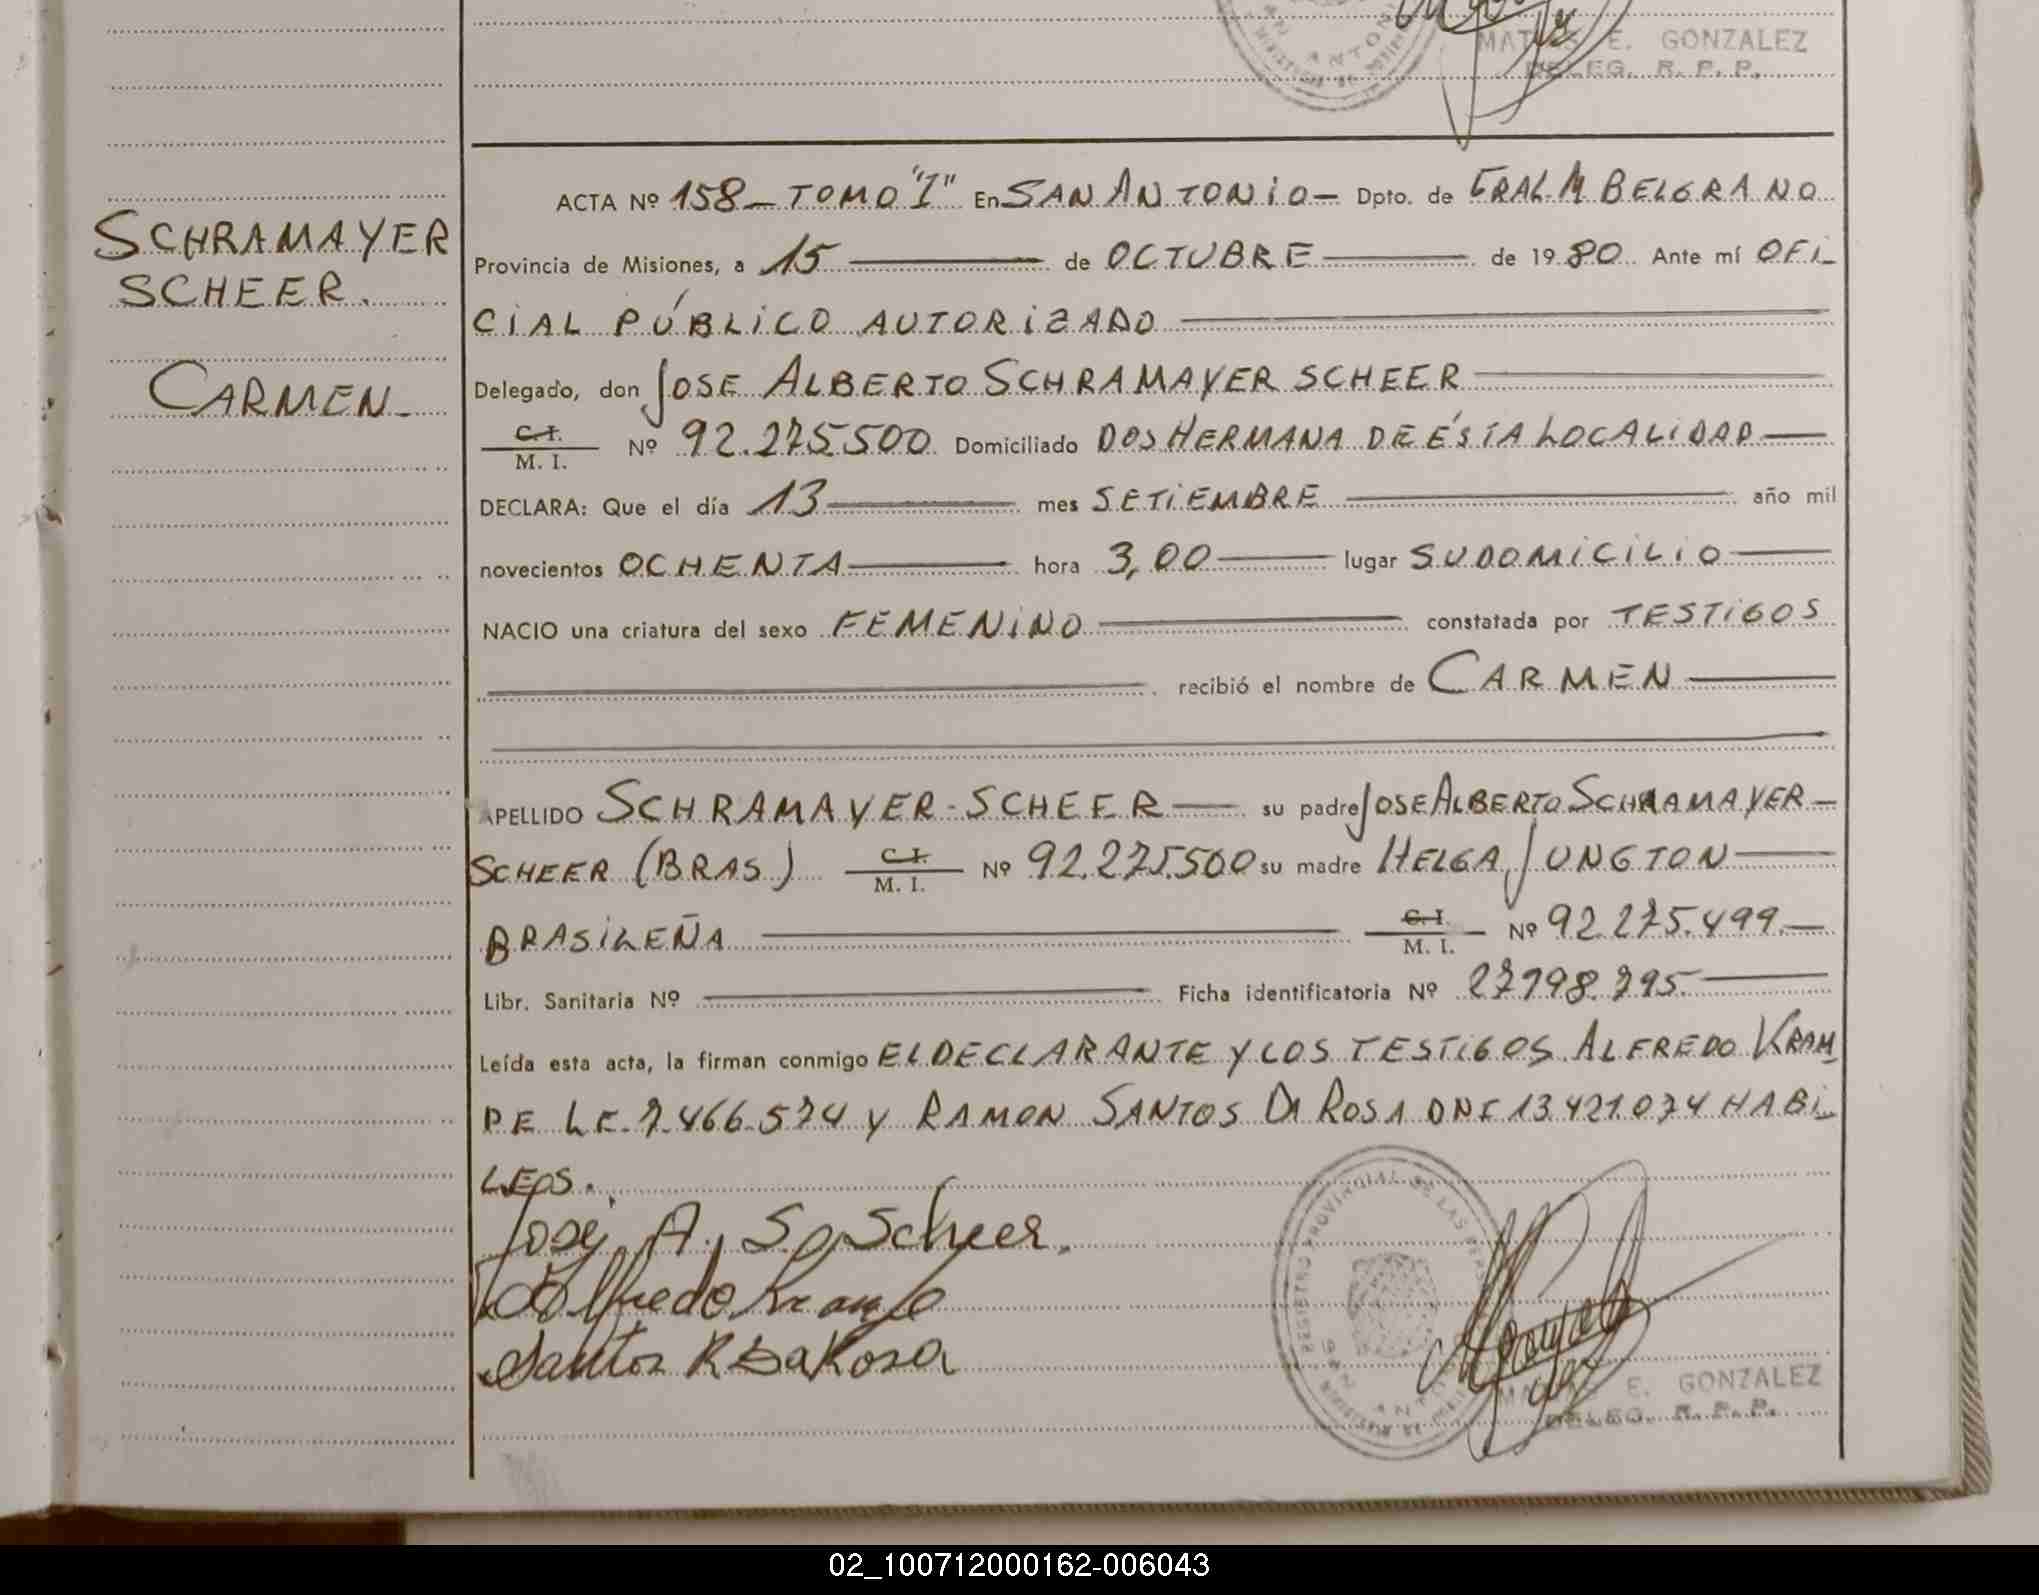 MATIAS E. GONZALEZ
DELEG. R. P. P.
SCHRAMAYER
SCHEER.
CARMEN_
ACTA Nº 158_ TOMO "I" En SAN ANTONIO_ Dpto. de GRAL. M BELGRANO
Provincia de Misiones, a 15 de OCTUBRE de 1980. Ante mí OFI_
CIAL PÚBLICO AUTORIZADO
Delegado, don JOSE ALBERTO SCHRAMAYER SCHEER
C.I.
M. I. Nº 92.275.500 Domiciliado DOS HERMANA DE ÉSTA LOCALIDAD
DECLARA: Que el día 13 mes SETIEMBRE año mil
novecientos OCHENTA hora 3,00 lugar SU DOMICILIO
NACIO una criatura del sexo FEMENINO constatada por TESTIGOS
recibió el nombre de CARMEN
APELLIDO SCHRAMAYER-SCHEER su padre JOSE ALBERTO SCHRAMAYER_
SCHEER (BRAS) C.I.
M. I. Nº 92.275.500 su madre HELGA JUNGTON
BRASILEÑA C.I
M. I. Nº 92.275.499._
Libr. Sanitaria Nº Ficha identificatoria Nº 27798.795.
Leída esta acta, la firman conmigo EL DECLARANTE Y LOS TESTIGOS ALFREDO KRAM_
PE L.E. 7.466.574 y RAMON SANTOS DA ROSA DNI 13.421.074 HABI_
LEOS.
José A. S. Scheer.
Alfredo Krampe
Santos R DaRosa
REGISTRO PROVINCIAL DE LAS PERS
SAN ANTONIO
MATIAS E. GONZALEZ
DELEG. R. P. P.
02_100712000162-006043